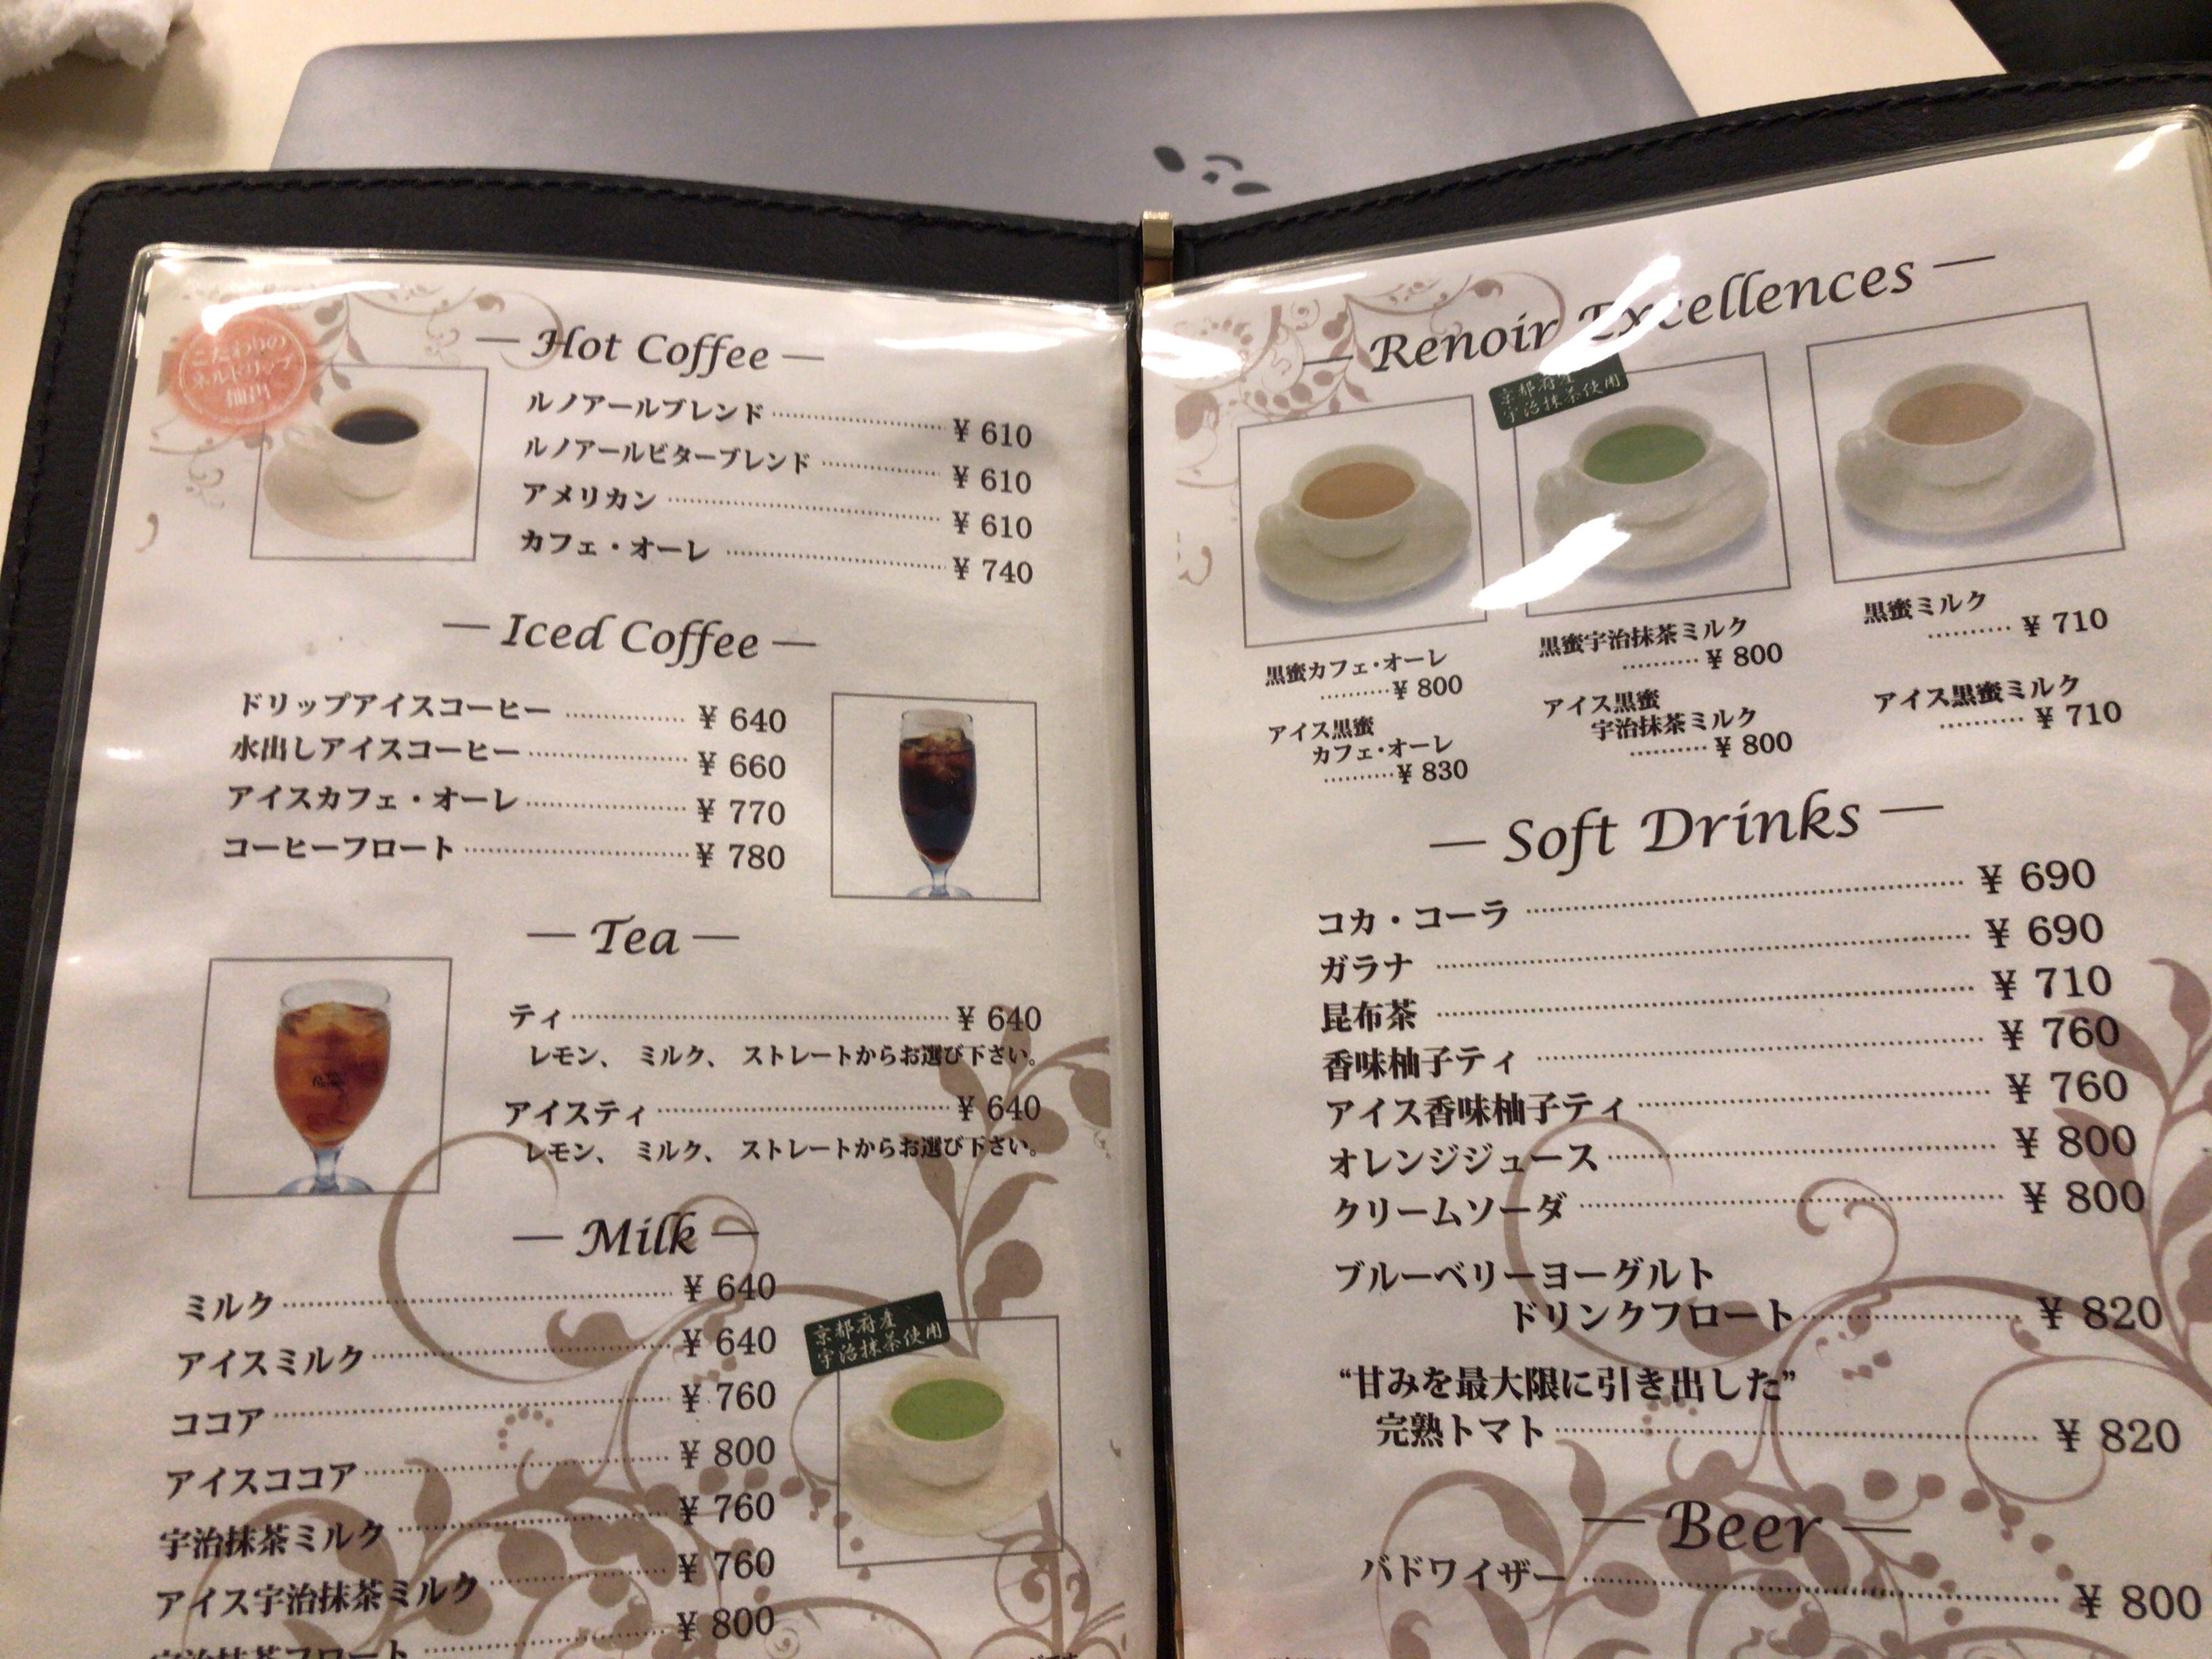 こだわりの
ネルドリップ
抽出
— Hot Coffee —
ルノアールブレンド ¥ 610
ルノアールビターブレンド ¥ 610
アメリカン ¥ 610
カフェ・オーレ ¥ 740
— Iced Coffee —
ドリップアイスコーヒー ¥ 640
水出しアイスコーヒー ¥ 660
アイスカフェ・オーレ ¥ 770
コーヒーフロート ¥ 780
— Tea —
ティ ¥ 640
レモン、 ミルク、 ストレートからお選び下さい。
アイスティ ¥ 640
レモン、 ミルク、 ストレートからお選び下さい。
— Milk —
ミルク ¥ 640
アイスミルク ¥ 640
ココア ¥ 760
アイスココア ¥ 800
宇治抹茶ミルク ¥ 760
アイス宇治抹茶ミルク ¥ 760
宇治抹茶フロート ¥ 800
京都府産
宇治抹茶使用
— Renoir Excellences —
京都府産
宇治抹茶使用
黒蜜カフェ・オーレ
¥ 800
アイス黒蜜
カフェ・オーレ
¥ 830
黒蜜宇治抹茶ミルク
¥ 800
アイス黒蜜
宇治抹茶ミルク
¥ 800
黒蜜ミルク
¥ 710
アイス黒蜜ミルク
¥ 710
— Soft Drinks —
コカ・コーラ ¥ 690
ガラナ ¥ 690
昆布茶 ¥ 710
香味柚子ティ ¥ 760
アイス香味柚子ティ ¥ 760
オレンジジュース ¥ 800
クリームソーダ ¥ 800
ブルーベリーヨーグルト
ドリンクフロート ¥ 820
“甘みを最大限に引き出した”
完熟トマト ¥ 820
— Beer —
バドワイザー ¥ 800